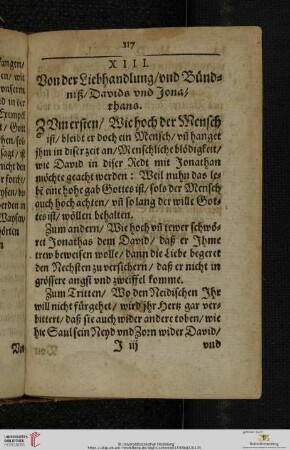 117
XIII.
Von der Liebhandlung/ vnd Bünd-
niß/ Davids vnd Jona-
thans.
ZVm ersten/ Wie hoch der Mensch
ist/ bleibt er doch ein Mensch/ vñ hanget
jhm in diser zeit an/ Menschliche blödigkeit/
wie David in diser Redt mit Jonathan
möchte geacht werden: Weil nuhn das le-
bẽ eine hohe gab Gottes ist/ solo der Mensch
auch hoch achten/ vñ so lang der wille Got-
tes ist/ wöllen behalten.
Zum andern/ Wie hoch vñ tewer schwö-
ret Jonathas dem David/ daß er Ihme
trew beweisen wolle/ dann die Liebe begeret
den Nechsten zu versichern/ daß er nicht in
grössere angst vnd zweiffel komme.
Zum Tritten/ Wo den Neidischen Ihr
will nicht fürgehet/ wird jhr Hertz gar ver-
bittert/ daß sie auch wider andere toben/ wie
hie Saul sein Neyd vnd Zorn wider David/
J iij vnd